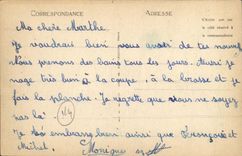 CORRESPONDANCE
ADRESSE
Ma chère Marthe
Je voudrais bien vous avoir de tes nouv
Nous prenons des bains tous les jours. Aussi je
nage très bien à la coupe, à la brasse et je
fais la planche. Je regrette que vous ne soyez
pas là.
Je les embrasse bien ainsi que
et Michel.
Monique